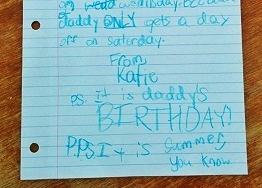 on wednesday.
daddy ONLY gets a day
off on saturday.
From
Katie
ps. It is daddy's
BIRTHDAY!
P.P.S It is summer,
you know